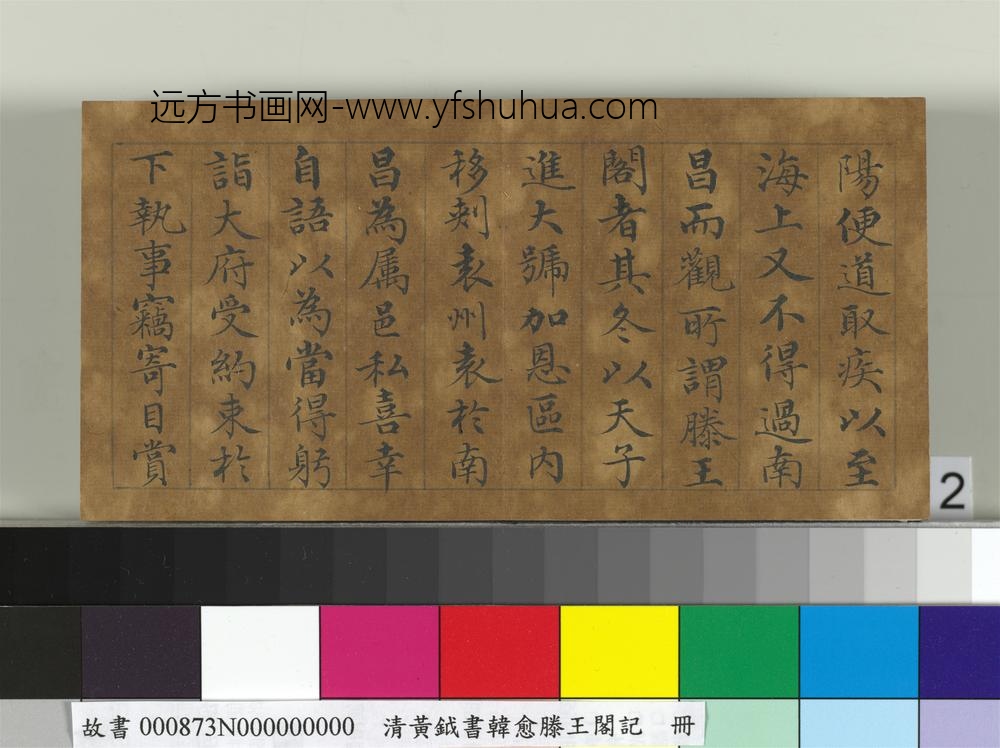 远方书画网-www.yfshuhua.com
陽便道取疾以至
海上又不得過南
昌而觀所謂滕王
閣者其冬以天子
進大號加恩區内
移刺袁州袁於南
昌為属邑私喜幸
自語以為當得躬
詣大府受約束於
下執事竊寄目賞
2
故書 000873N000000000 清黃鉞書韓愈滕王閣記 冊